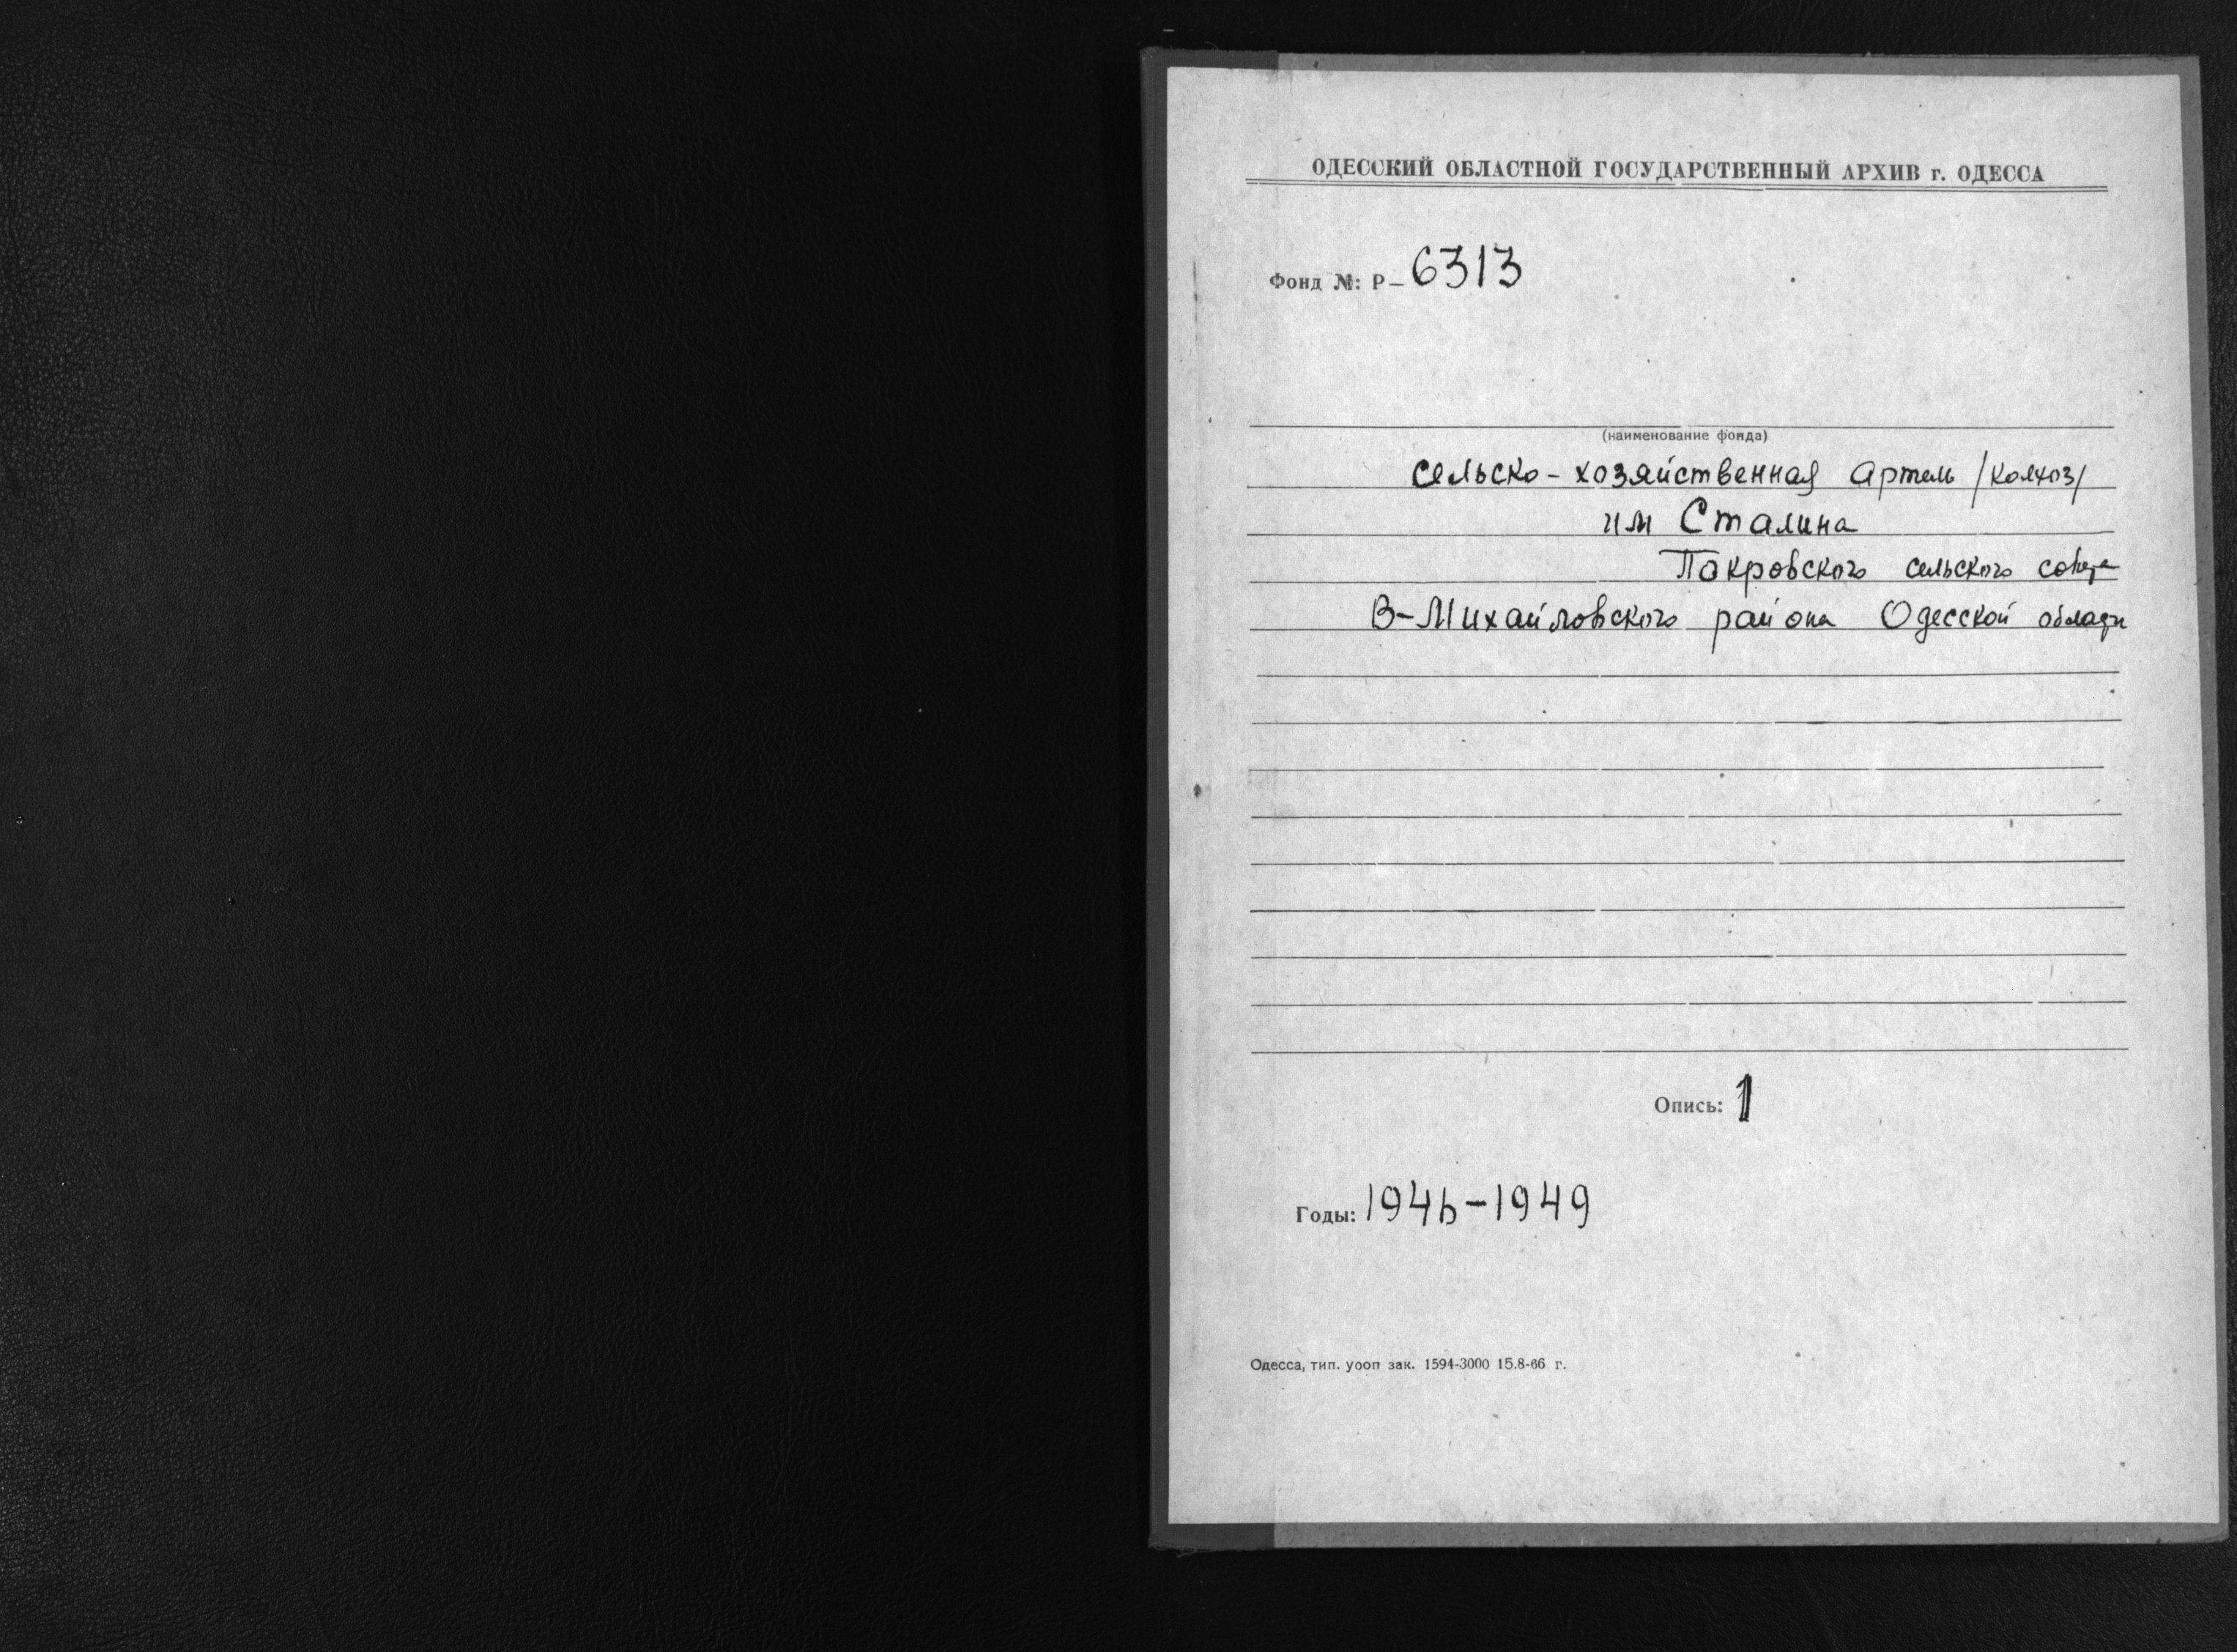 ОДЕССКИЙ ОБЛАСТНОЙ ГОСУДАРСТВЕННЫЙ АРХИВ г. ОДЕССА
Фонд №: Р- 6313
(наименование фонда)
сельско-хозяйственная Артель /колхоз/
им Сталина
Покровского сельского совета
В-Михайловского района Одесской области
Опись: 1
Годы: 1946-1949
Одесса, тип. уооп зак. 1594-3000 15.8-66 г.